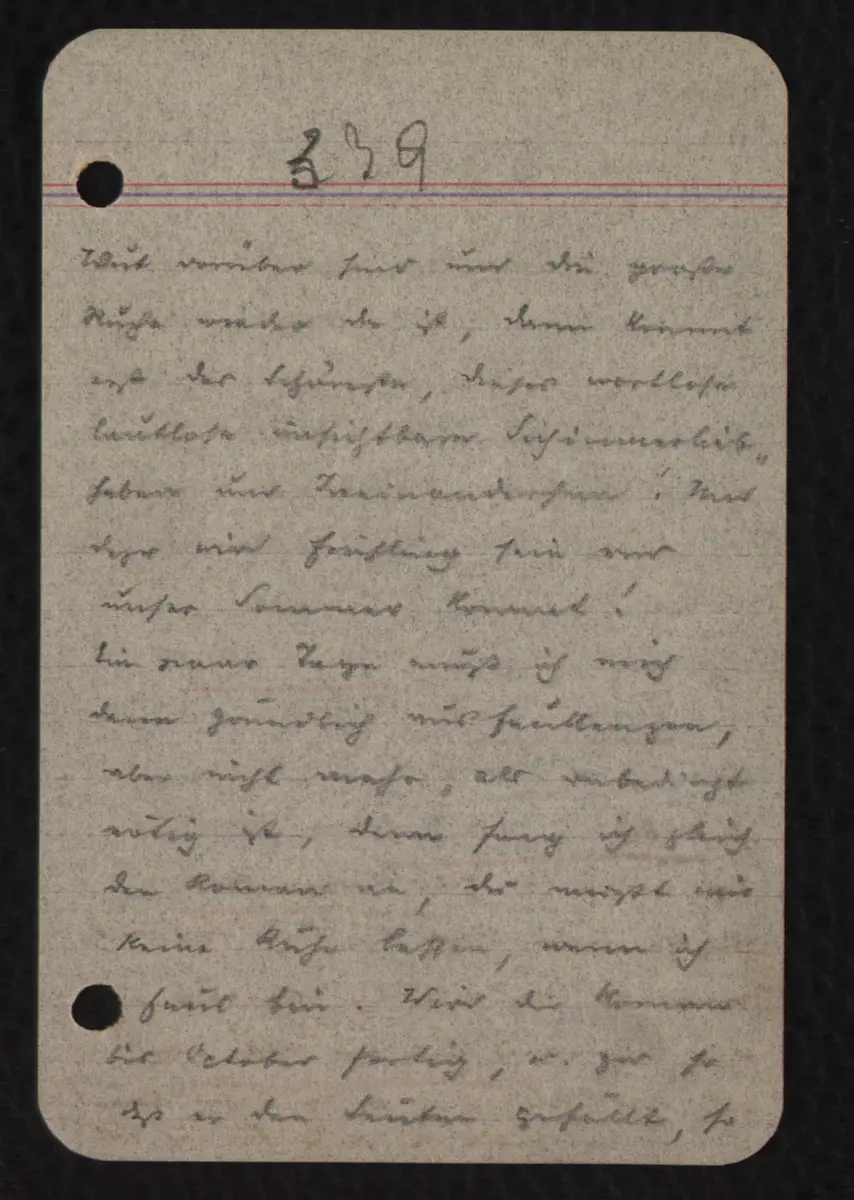 339
Wut vorüber sind und die große
Ruhe wieder da ist, dann kommt
erst das Schönste, dieses wortlose
lautlose unsichtbare Sichimmerlieb-
haben und Ineinandersein! Und
wird Frühling sein und
unser Sommer kommt!
Ein paar Tage muß ich mich
dann gründlich ausfaullenzen,
aber nicht mehr, als unbedingt
nötig ist, dann fang ich gleich
den Roman an, du mußt mir
keine Ruhe lassen, wenn ich
faul bin. Wird der Roman
bis October fertig, u. zwar so
daß er den Leuten gefällt, so